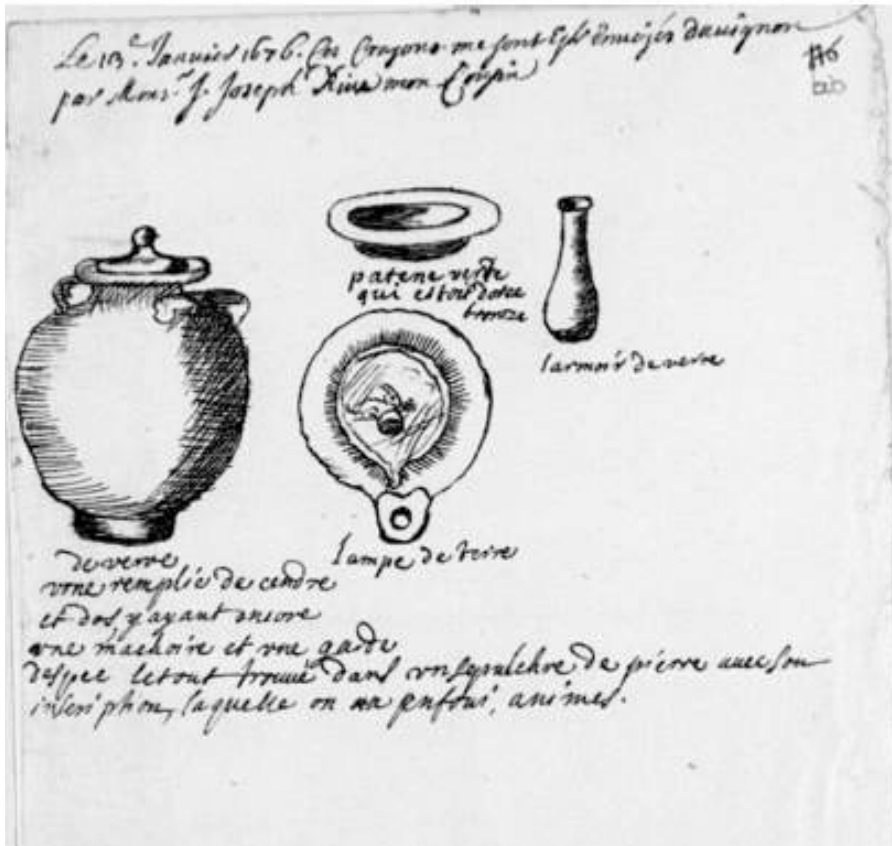 Le 13e. Janvier 1676. Ces Crayons me sont envoyés dauignon
par Monsr. J. Joseph mon Cousin
patene verte
qui estoit
bronze
larmoir de verre
lampe de terre
de verre
vrne remplie de cendre
et dos y ayant encore
vne machoire et vne garde
despee letout trouvé dans vn sepulchre de pierre auec son
inscription, laquelle on enfoui, a nimes.